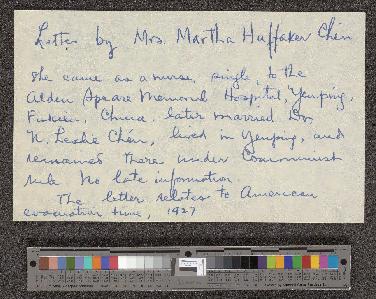 Letter by Mrs. Martha Huffaker Chén
She came as a nurse, single, to the
Alden Speare Memorial Hospital, Yenping,
Fukien, China; later married Dr.
N. Leslie Chén, lived in Yenping, and
remained there under Communist
rule No late information.
The letter relates to American
evacuation time, 1927